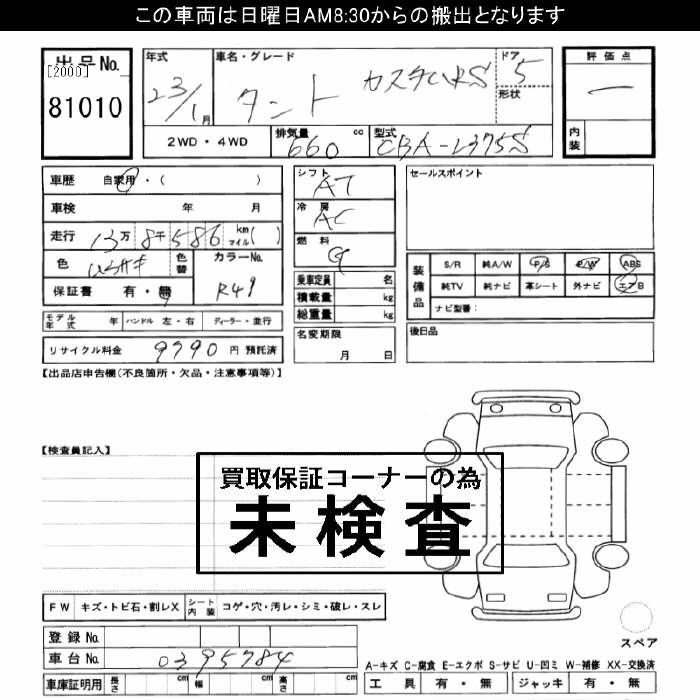 この車両は日曜日AM8:30からの搬出となります
出品No.
[2000]
81010
年式
23/1月
車名・グレード
タント カスタムRS
ドア
5
形状
2WD・4WD
排気量
660 cc
型式
CBA-L375S
評価点
ー
内装
車歴 自家用・( )
車検 年 月
走行 13万8千586 km マイル( )
色
色替
カラーNo.
R49
保証書 有・無
モデル年式 年 ハンドル 左・右 ディーラー・並行
リサイクル料金 9790 円 預託済
シフト
AT
冷房
AC
燃料
G
乗車定員 名
積載量 kg
総重量 kg
名変期限
月 日
セールスポイント
装備品
S/R 純A/W P/S P/W ABS
純TV 純ナビ 革シート 外ナビ エアB
ナビ型番:
後日品
【出品店申告欄(不良箇所・欠品・注意事項等)】
【検査員記入】
買取保証コーナーの為
未検査
FW キズ・トビ石・割レX シート内装 コゲ・穴・汚レ・シミ・破レ・スレ
登録No.
車台No. 0395784
車庫証明用 長さ cm 幅 cm 高さ cm
スペア
A-キズ C-腐食 E-エクボ S-サビ U-凹ミ W-補修 XX-交換済
工具 有・無 ジャッキ 有・無